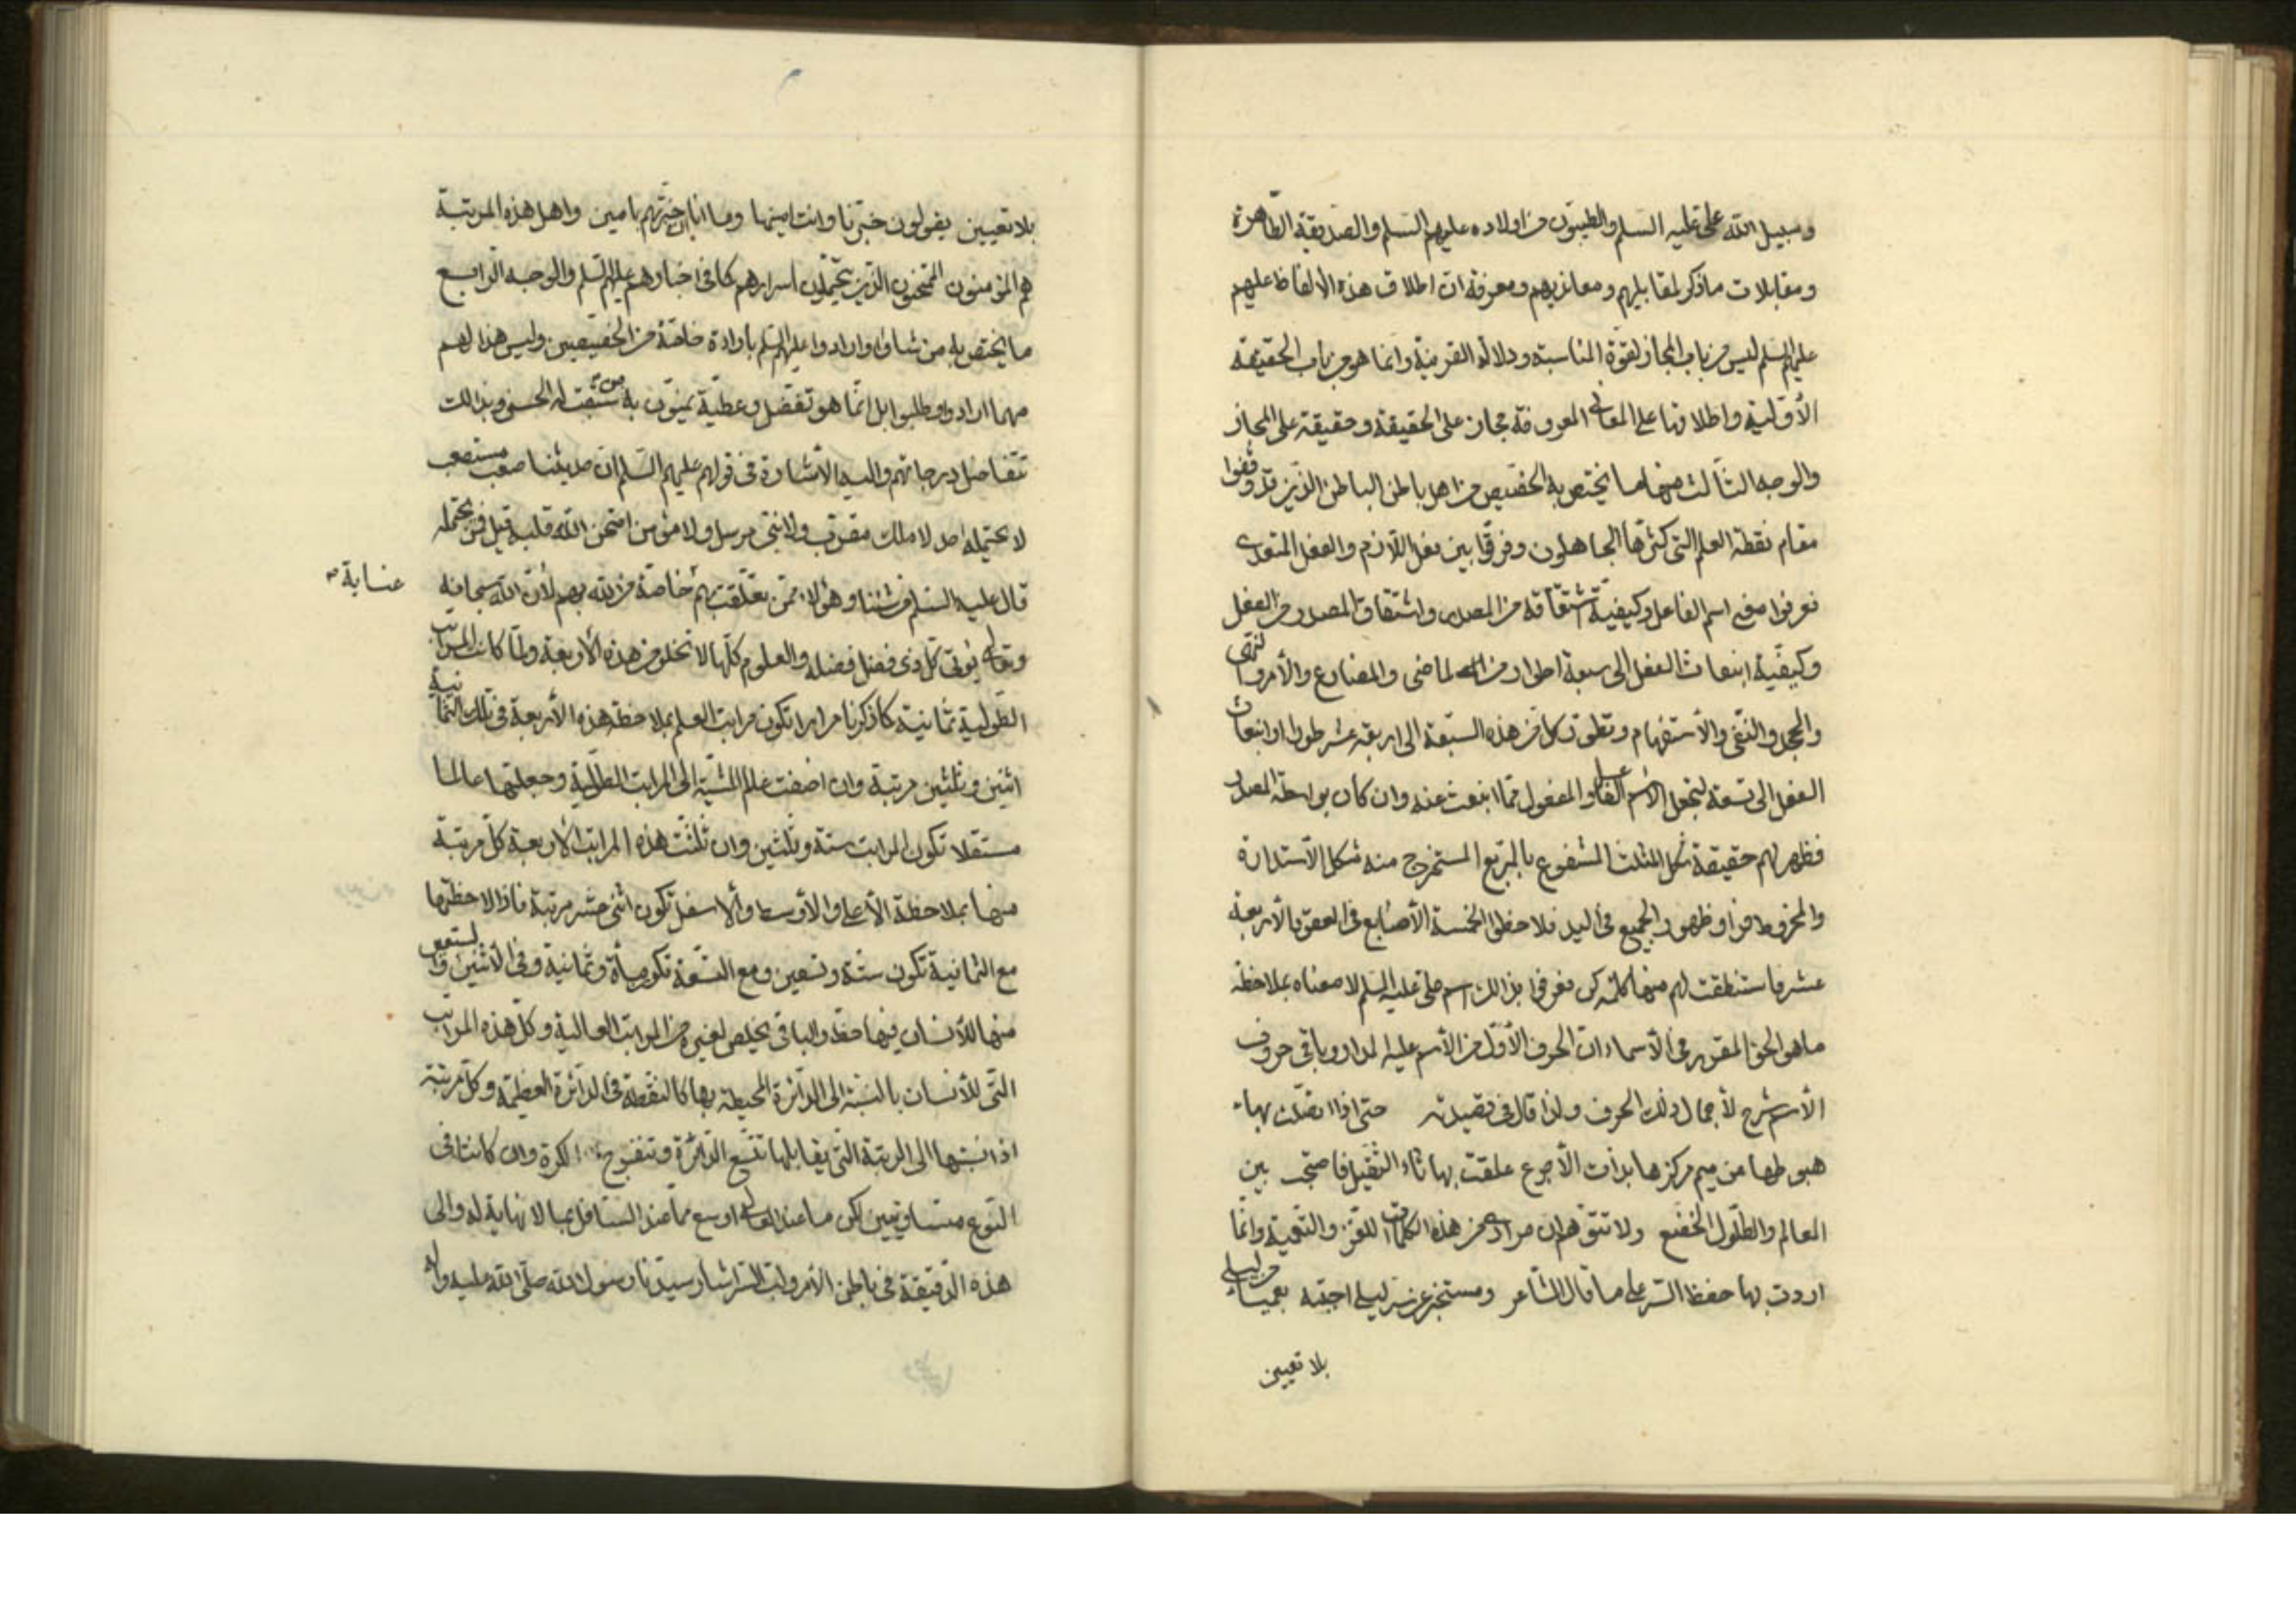 وسبيل الله علي عليه السلم والطيبون من اولاده عليهم السلم والصديقة الطاهرة
ومقابلات ما ذكر لمقابليهم ومعانديهم ومعرفة ان اطلاق هذه الألفاظ عليهم
عليهم السلم ليس من باب المجاز لقوة المناسبة ودلالة القرينة وانما هو من باب الحقيقة
الأولية واطلاقها على المعاني المعروفة مجاز على الحقيقة وحقيقة على المجاز
والوجه الثالث منها ما يختص به الخصيص من اهل باطن الباطن الذين قد وقفوا
مقام نقطة العلم التي كثرها الجاهلون وفرقوا بين فعل اللازم والفعل المتعدي
فعرفوا صوغ اسم الفاعل وكيفية اشتقاقه من المصدر واشتقاق المصدر من الفعل
وكيفية انبعاث الفعل الى سبعة اطوار من الماضي والمضارع والأمر والنهي
والجحد والنفي والأستفهام وتطور كل من هذه السبعة الى اربعة عشر طورا وانبعاث
الفعل الى تسعة لتجعل الأسم الفاعل والمفعول مما انبعث عنه وان كان بواسطة المصدر
فظهر لهم حقيقة شكل المثلث المشفوع بالمربع المستخرج منه شكل الأستدارة
والمخروط فراو ظهور الجميع في اليد فلاحظوا الخمسة الأصابع في العقود الأربعة
عشر فاستنطقت لهم منها كلمة كن فعرفوا بذالك اسم علي عليه السلم لا معناه بملاحظة
ما هو الحق المقرر في الأسماء ان الحرف الأول من الأسم عليه المدار وباقي حروف
الأسم شرح لأجمال ذلك الحرف ولذا قال في قصيدته حتى اذا اتصلت بهاء
هبوطها من ميم مركزها بذات الأجرع علقت بها ثاء الثقيل فاصبحت بين
المعالم والطلول الخضع ولا تتوهم ان مرادي من هذه الكلمات اللغز والتعمية وانما
اردت بها حفظ السر على ما قال الشاعر ومستخبر عن سر ليلى اجبته بعمياء من ليلى
بلا تعيين
بلا تعيين يقولون خبرنا وانت امينها وما انا ان خبرتهم بامين واهل هذه المرتبة
هم المؤمنون الممتحنون الذين يحتملون اسرارهم كما في اخبارهم عليهم السلم والوجه الرابع
ما يختص به من شاؤا وارادوا عليهم السلم بارادة خاصة من الخصيصين وليس هذا لهم
مهما ارادوا وطلبوا بل انما هو تفضل وعطية يمنون به من سبقت له الحسنى وبذالك
تتفاضل درجاتهم واليه الأشارة في قولهم عليهم السلم ان حديثنا صعب مستصعب
لا يحتمله احد لا ملك مقرب ولا نبي مرسل ولا مؤمن امتحن الله قلبه قيل فمن يحتمله
قال عليه السلم من شئنا وهؤلاء ممن تعلقت بهم خاصة من الله بهم لأن الله سبحانه
عناية
وتعالى يؤتي كل ذي فضل فضله والعلوم كلها لا تخلو من هذه الأربعة ولما كانت المراتب
الطولية ثمانية كما ذكرنا مرارا تكون مراتب العلم بملاحظة هذه الأربعة في تلك الثمانية
اثنين وثلثين مرتبة وان اضفت عالم المشية الى المراتب الطولية وجعلتها عالما
مستقلا تكون المراتب ستة وثلثين وان ثلثت هذه المراتب الأربعة كل مرتبة
منها بملاحظة الأعلى والأوسط والأسفل تكون اثنى عشر مرتبة فاذا لاحظتها
مع الثمانية تكون ستة وتسعين ومع التسعة تكون مأة وثمانية وفي الأثنين والتسعين
منها للأنسان فيها حظ والباقي يخلص لغيره من المراتب العالية وكل هذه المراتب
التي للأنسان بالنسبة الى الدائرة المحيطة بها كالنقطة في الدائرة العظيمة وكل مرتبة
اذا نسبتها الى الرتبة التي يقابلها تتسع الدائرة وتنفرج الكرة وان كانتا في
النوع متساويتين لكن ما عند العالي اوسع مما عند السافل بما لا نهاية له والى
هذه الدقيقة في باطن الأمر ولب السر اشار سيدنا رسول الله صلى الله عليه واله